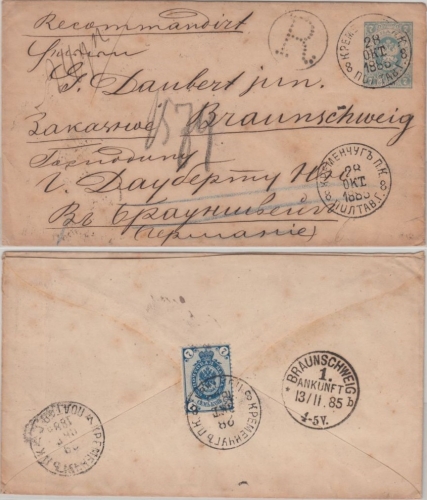 Recommandirt
R.
Herrn
G. Daubert jun.
Заказное Braunschweig
Господину
Г. Дауберту Юн.
Въ Брауншвейгъ
(Германіе)
КРЕМЕНЧУГЪ П.К.
28
ОКТ
1885
ПОЛТАВ.Г.
8
КРЕМЕНЧУГЪ П.К.
28
ОКТ
1885
ПОЛТАВ.Г.
8
7
7
КРЕМЕНЧУГЪ П.К.
28
BRAUNSCHWEIG
1.
ANKUNFT
13/11.85
4-5V.
b
КРЕМЕНЧУГЪ П.К.